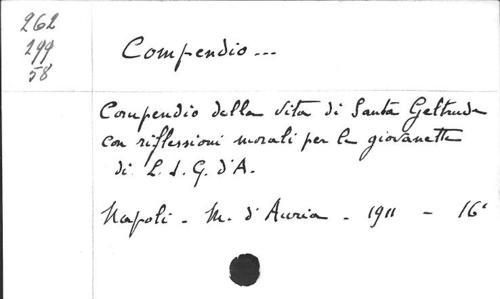 262
299
58
Compendio...
Compendio della vita di Santa Geltrude
con riflessioni morali per le giovanette
di L. S. G. d'A.
Napoli - M. d'Auria - 1911 - 16°